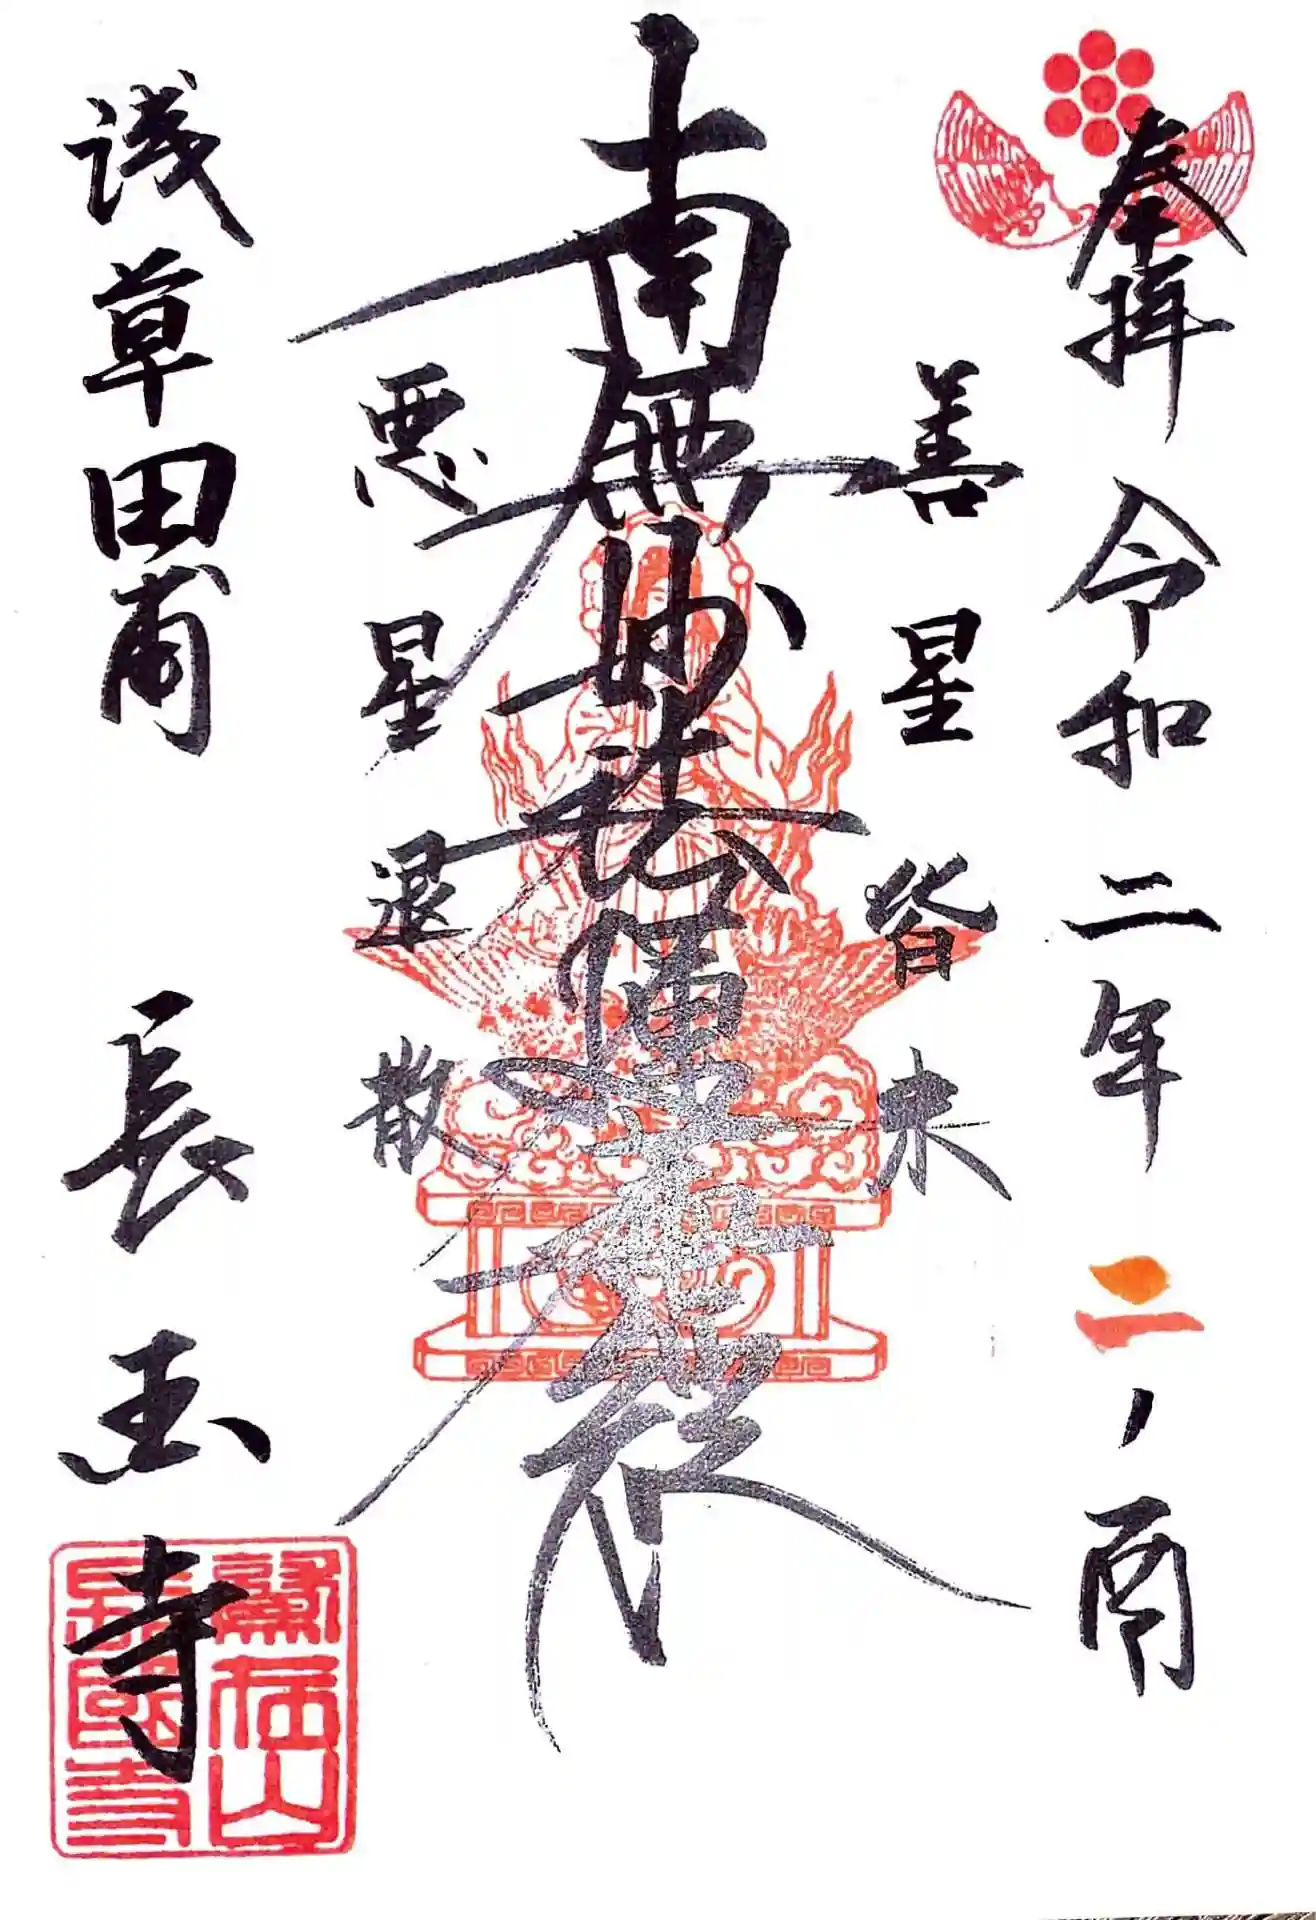 奉拝 令和二年 二ノ酉
善星皆来
南無妙法蓮華経
悪星退散
浅草田甫 長玉寺
鷲在山
長國寺